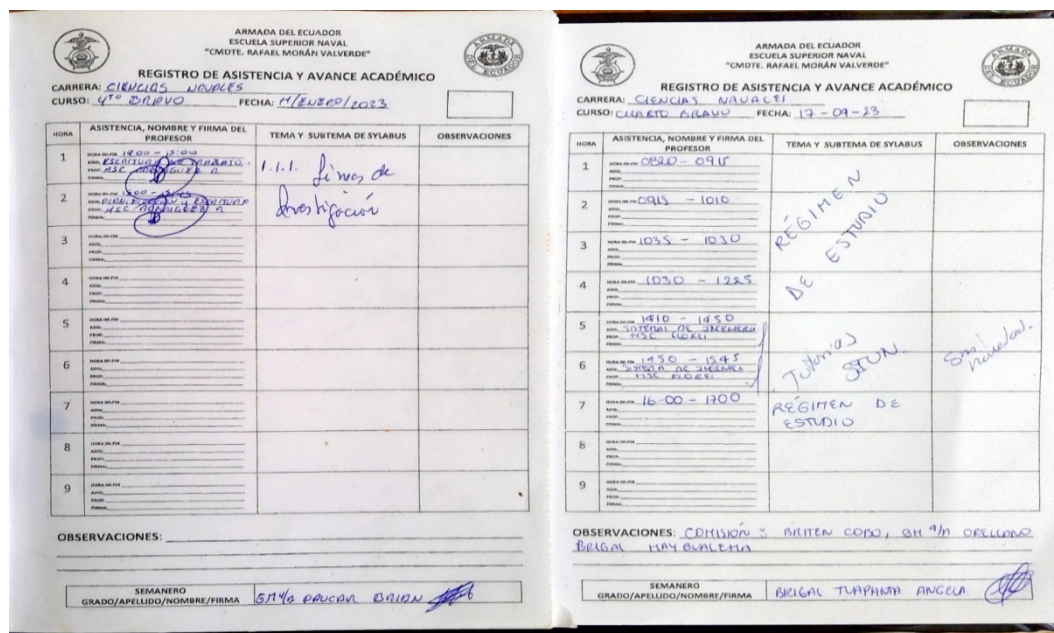 ARMADA DEL ECUADOR
ESCUELA SUPERIOR NAVAL
"CMDTE. RAFAEL MORÁN VALVERDE"
ARMADA DEL ECUADOR
REGISTRO DE ASISTENCIA Y AVANCE ACADÉMICO
CARRERA: CIENCIAS NAVALES
CURSO: 4TO BRAVO FECHA: 11/ENERO/2023
HORA ASISTENCIA, NOMBRE Y FIRMA DEL PROFESOR TEMA Y SUBTEMA DE SYLABUS OBSERVACIONES
1 HORA INI-FIN 1400 - 1500
ASIG: ESCRITURA DE TRABAJO
PROF: MSC RODRIGUEZ R
FIRMA:
1.1.1. líneas de
Investigación
2 HORA INI-FIN 1500 -
ASIG: Y ESCRITURA
PROF: MSC RODRIGUEZ R
FIRMA:
3 HORA INI-FIN
ASIG:
PROF:
FIRMA:
4 HORA INI-FIN
ASIG:
PROF:
FIRMA:
5 HORA INI-FIN
ASIG:
PROF:
FIRMA:
6 HORA INI-FIN
ASIG:
PROF:
FIRMA:
7 HORA INI-FIN
ASIG:
PROF:
FIRMA:
8 HORA INI-FIN
ASIG:
PROF:
FIRMA:
9 HORA INI-FIN
ASIG:
PROF:
FIRMA:
OBSERVACIONES:
SEMANERO
GRADO/APELLIDO/NOMBRE/FIRMA GM4/B PAUCAR BRIAN
ARMADA DEL ECUADOR
ESCUELA SUPERIOR NAVAL
"CMDTE. RAFAEL MORÁN VALVERDE"
ARMADA DEL ECUADOR
REGISTRO DE ASISTENCIA Y AVANCE ACADÉMICO
CARRERA: CIENCIAS NAVALES
CURSO: CUARTO BRAVO FECHA: 17-04-23
HORA ASISTENCIA, NOMBRE Y FIRMA DEL PROFESOR TEMA Y SUBTEMA DE SYLABUS OBSERVACIONES
1 HORA INI-FIN 0820 - 0915
ASIG:
PROF:
FIRMA:
2 HORA INI-FIN 0915 - 1010
ASIG:
PROF:
FIRMA:
RÉGIMEN
DE ESTUDIO
3 HORA INI-FIN 1035 - 1030
ASIG:
PROF:
FIRMA:
4 HORA INI-FIN 1030 - 1225
ASIG:
PROF:
FIRMA:
5 HORA INI-FIN 1410 - 1450
ASIG: SISTEMAS DE INGENIERIA
PROF: MSC FLORES
FIRMA:
6 HORA INI-FIN 1450 - 1545
ASIG: SISTEMA DE INGENIERIA
PROF: MSC FLORES
FIRMA:
Tutorías
7 HORA INI-FIN 16-00 - 1700
ASIG:
PROF:
FIRMA:
RÉGIMEN DE
ESTUDIO
8 HORA INI-FIN
ASIG:
PROF:
FIRMA:
9 HORA INI-FIN
ASIG:
PROF:
FIRMA:
OBSERVACIONES: COMISIÓN: BRITEN COBO, GM 4/A ORELLANO
BRIGAL MAYGUALEMA
SEMANERO
GRADO/APELLIDO/NOMBRE/FIRMA BRIGAL TUAPANTA ANGELA